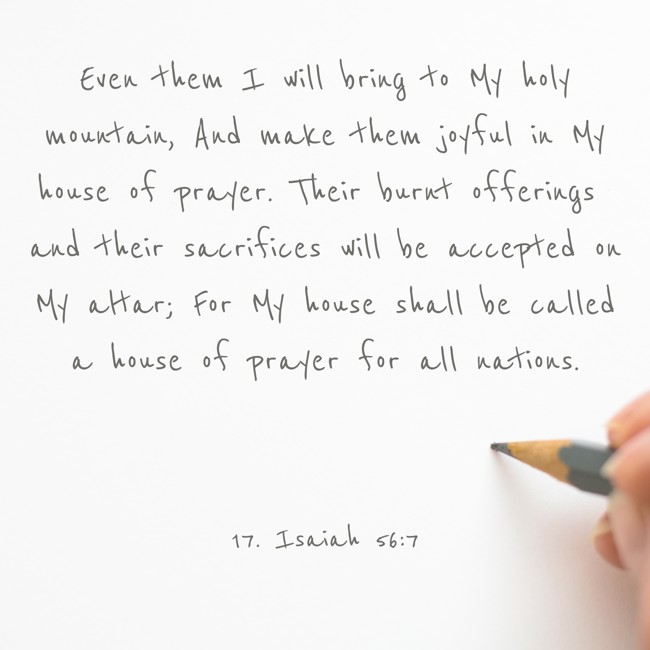 Even them I will bring to My holy
mountain, And make them joyful in My
house of prayer. Their burnt offerings
and their sacrifices will be accepted on
My altar; For My house shall be called
a house of prayer for all nations.
17. Isaiah 56:7